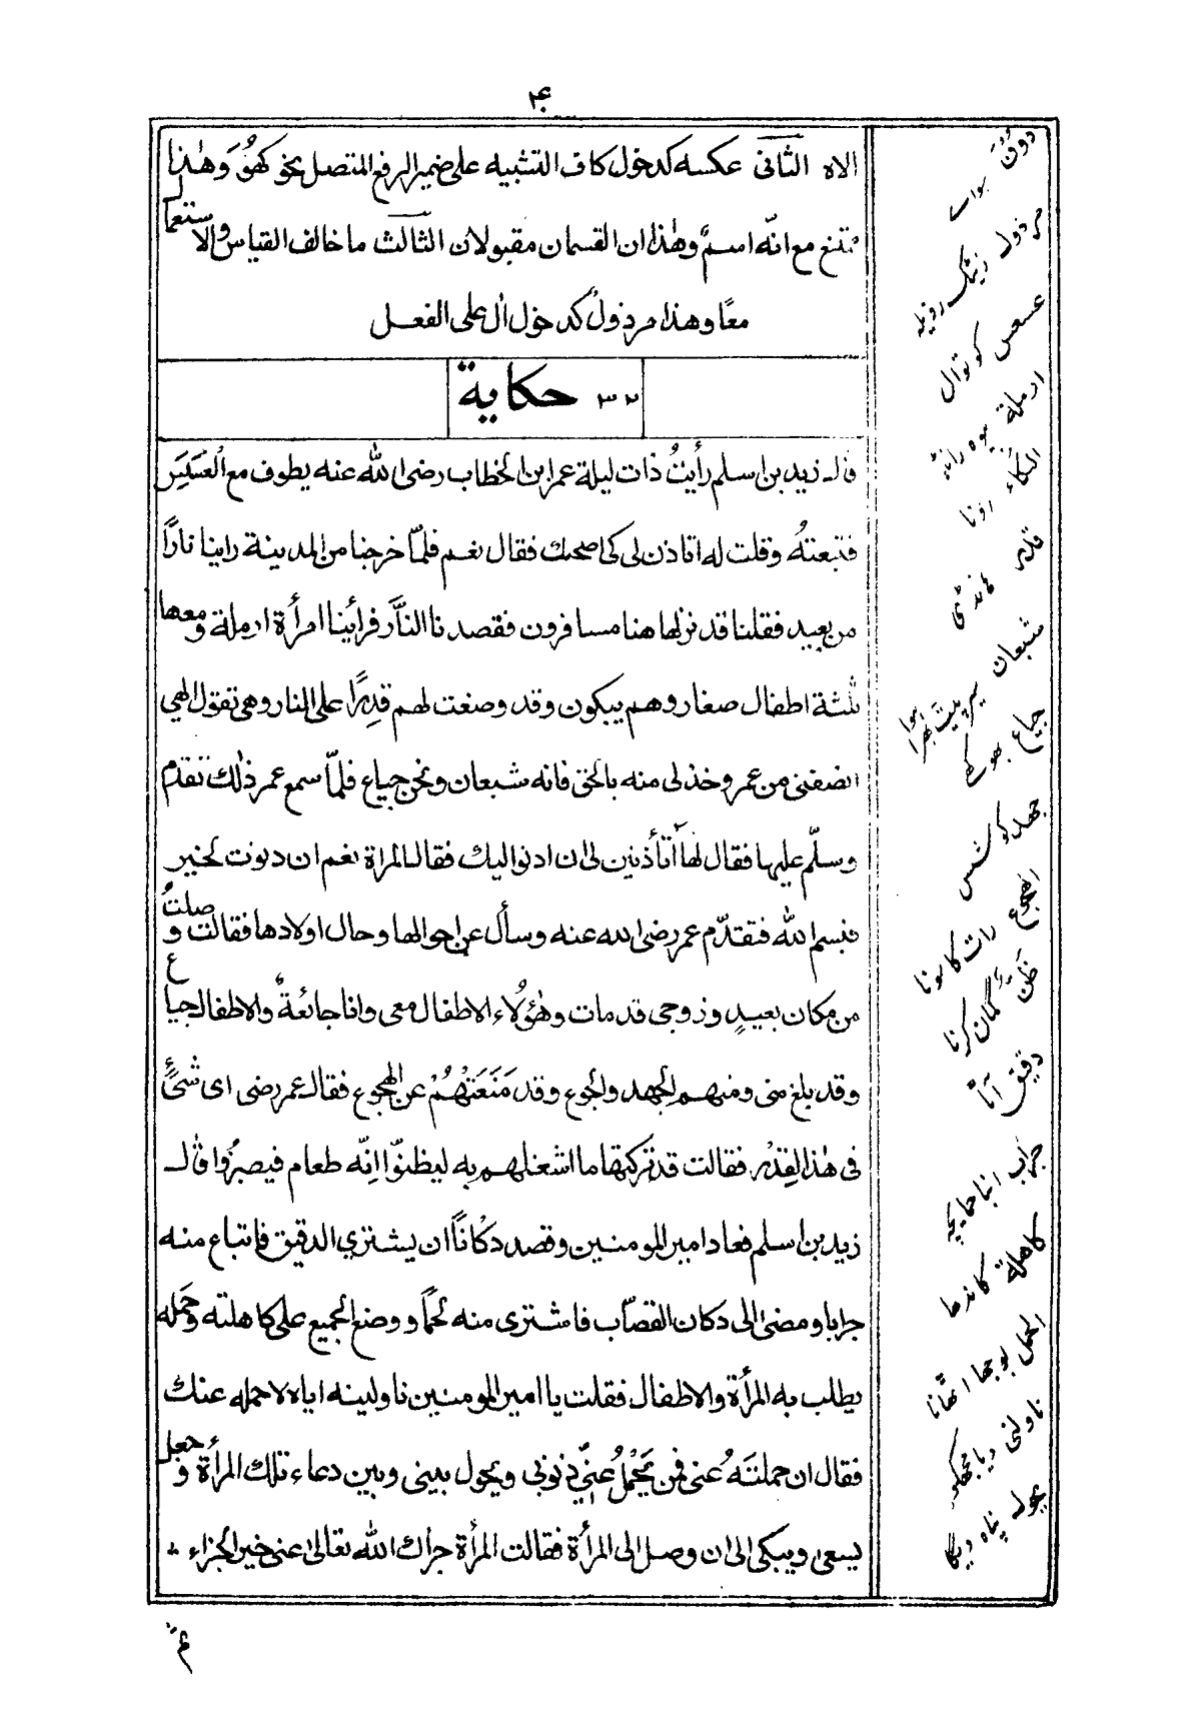 ۴۰
الاه الثانی عکسه کدخول کاف التشبیه علی ضمیر الرفع المتصل نحو کهُوَ وَهٰذا
ممتنع مع انّه اسمٌ وهٰذان القسمان مقبولان الثالث ما خالف القیاس والاستعمال
معًا وهذا مرذولٌ کدخول ال علی الفعل
۳۲ حکایة
قال زید بن اسلم رأیتُ ذات لیلة عمر ابن الخطاب رضی الله عنه یطوف مع العَسَسِ
فتبعتهُ وقلت له اتاذن لی کی اصحبك فقال نعم فلمّا خرجنا من المدینة راینا نارًا
من بعید فقلنا قد نزل هاهنا مسافرون فقصدنا النَّار فرأینا امرأة ارملة ومعها
ثلثة اطفال صغار وهم یبکون وقد وضعت لهم قِدرًا علی النار وهی تقول الهی
انصفنی من عمر وخذلی منه بالحق فانه شبعان ونحن جیاع فلمّا سمع عمر ذلك تقدم
وسلّم علیها فقال لها أتأذنین لی ان ادنوا الیك فقالت المراة نعم ان دنوت لخیر
فبسم الله فتقدّم عمر رضی الله عنه وسأل عن احوالها وحال اولادها فقالت وصلتُ
من مکان بعیدٍ وزوجی قد مات وهٰؤلاء الاطفال معی وانا جائعةٌ والاطفال جیاع
وقد بلغ منی ومنهم الجهد والجوع وقد مَنَعَتْهُمْ عن الهجوع فقال عمر رضی ای شیءٍ
فی هٰذا القِدْر فقالت قد ترکتها ما اشغلهم به لیظنوّا انّه طعام فیصبرُوا قال
زید بن اسلم فعاد امیر المومنین وقصد دکانًا ان یشتری الدقیق فابتاع منه
جرابا ومضی الی دکان القصّاب فاشتری منه لحمًا ووضع الجمیع علی کاهلته وحمله
یطلب به المرأة والاطفال فقلت یا امیر المومنین ناولینه ایاه لاحمله عنك
فقال ان حملتَهُ عنی فمن یَحْمِلُ عنّی ذنوبی ویحول بینی وبین دعاء تلك المرأة وجعل
یسعی ویبکی الی ان وصل الی المرأة فقالت المرأة جزاك الله تعالی عنی خیر الجزاء
دون سواے
مرذول
عسعس کوتوال
ارملة بیوه رانڈ
البکاء رونا
قدر هانڈی
شبعان سیر پیٹ بهرا هوا
جیاع بهوکے
جهد کوشش
الهجوع رات کا سونا
ظن گمان کرنا
دقیق آٹا
جراب
کاهلة کاندها
الحمل بوجها اٹهانا
ناولنی دیا مجهکو